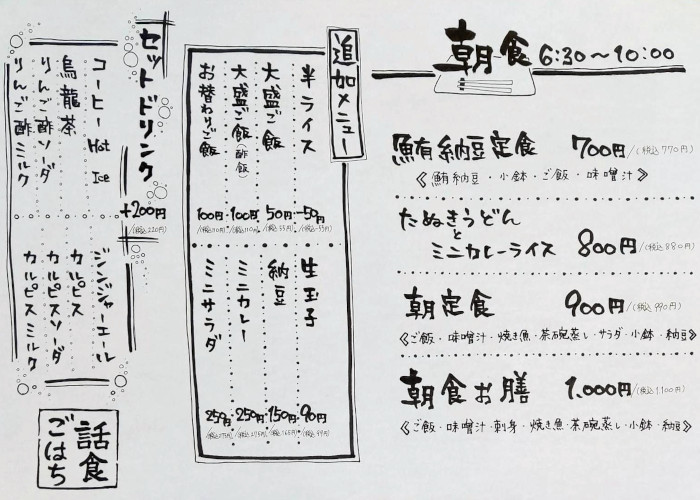 朝食 6:30〜10:00
鮪納豆定食 700円/(税込770円)
《鮪納豆・小鉢・ご飯・味噌汁》
たぬきうどん
と
ミニカレーライス 800円/(税込880円)
朝定食 900円/(税込990円)
《ご飯・味噌汁・焼き魚・茶碗蒸し・サラダ・小鉢・納豆》
朝食お膳 1,000円/(税込1,100円)
《ご飯・味噌汁・刺身・焼き魚・茶碗蒸し・小鉢・納豆》
追加メニュー
半ライス -50円/(税込-55円)
大盛ご飯 50円/(税込55円)
大盛ご飯(酢飯) 100円/(税込110円)
お替わりご飯 100円/(税込110円)
生玉子 90円/(税込99円)
納豆 150円/(税込165円)
ミニカレー 250円/(税込275円)
ミニサラダ 250円/(税込275円)
セットドリンク +200円(税込220円)
コーヒー Hot Ice
烏龍茶
りんご酢ソーダ
りんご酢ミルク
ジンジャーエール
カルピス
カルピスソーダ
カルピスミルク
話食
ごはち